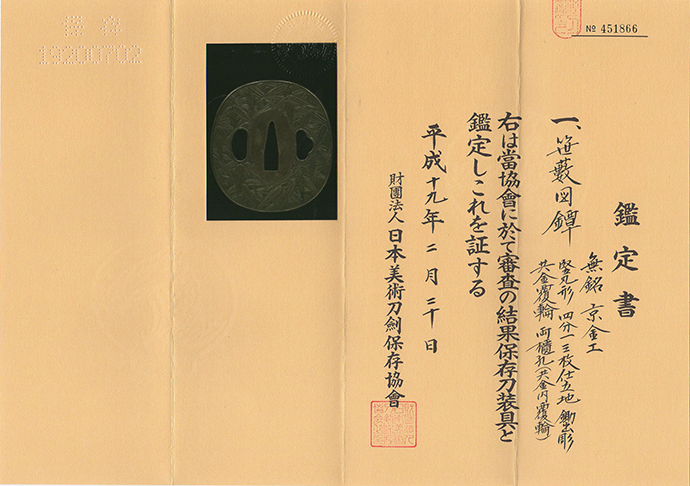 № 451866
鑑定書
一、笹藪図鐔
無銘 京金工
竪丸形 四分一三枚仕立地 鋤出彫
共金覆輪 両櫃孔(共金内覆輪)
右は當協會に於て審査の結果保存刀装具と
鑑定しこれを証する
平成十九年二月二十日
財團法人 日本美術刀劍保存協會
19200702